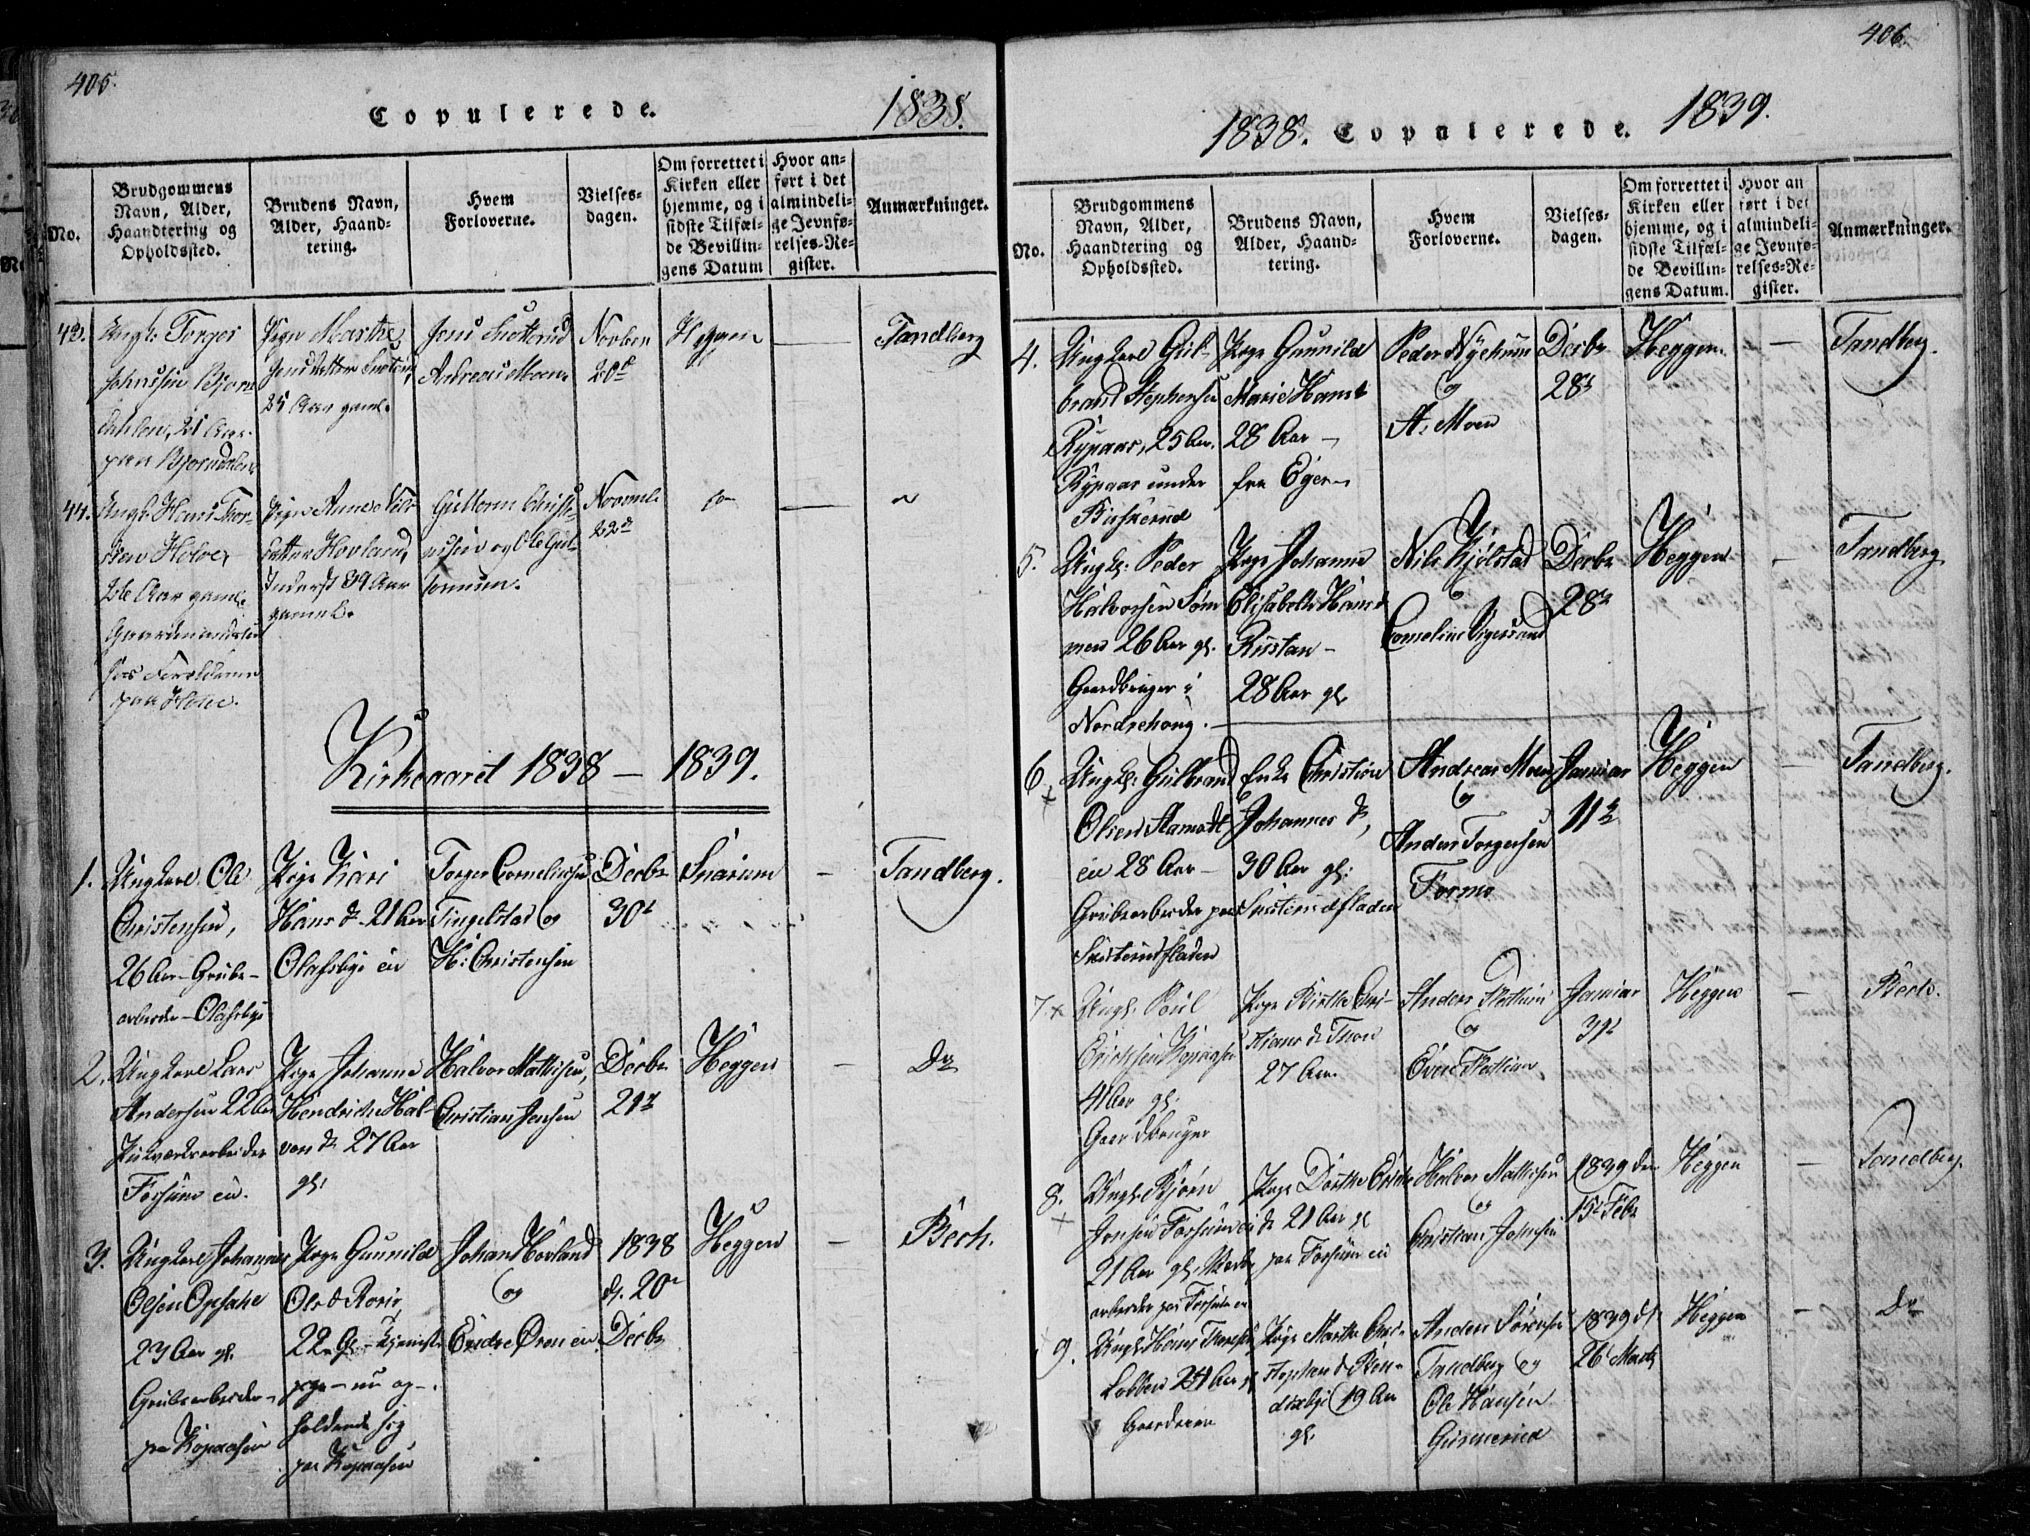 405.
Copulerede.
1838.
No.
Brudgommens
Navn, Alder,
Haandtering og
Opholdssted.
Brudens Navn,
Alder, Haand-
tering.
Hvem
Forloverne.
Vielses-
dagen.
Om forrettet i
Kirken eller
hjemme, og i
sidste Tilfæl-
de Bevillin-
gens Datum
Hvor an-
ført i det
almindeli-
ge Jevnfø-
relses-Re-
gister.
Anmærkninger.
43. Ungk. Torger
Johnssen Bjørn
dahlen, 25 Aar
paa Bjørndalen
Pige Marthe
Jensdatter
25 Aar gaml.
Jens
Andreas Moen
Novber
20de
Heggen
Tandberg
44. Ungk. Hans Thor-
sen Holve,
26 Aar gaml.
Gaardmandssøn
hos Forældrene
paa Holve.
Pige Anne Nils
datter Hovland,
Inderst 39 Aar
gammel.
Guttorm Christi-
ansen og Ole Gul-
Novemb
22de
Kirkeaaret 1838 - 1839.
1. Ungkarl Ole
Christensen,
26 Aar - Grube-
arbeider - Olafsbye
Pige Kari
Hans D. 21 Aar
Olafsbye
Torger Corneliusen
Tingelstad og
H: Christensen
Decbr
30t
Snarum
-
Tandberg.
2. Ungkarl Lars
Andersen 22 Aar
Pukværksarbeider
Fossum
Pige Johanne
Hendrikke Hal-
vors D. 27 Aar
gl.
Halvor Mathisen,
Christian Jensen
Decbr
21de
Heggen
-
Do
3. Ungkarl Johannes
Olsen Opsahl
23 Aar gl.
Grubearbeider -
paa Kopaasen
Pige Gunnild
Ols D.
22 gl - Tjeneste
pige - nu op-
holdende sig
paa Kopaasen
Johan Hovland
og
Endre Øren
1838
d. 20de
Decbr
Heggen
-
Bech.
406.
1838. Copulerede. 1839.
No.
Brudgommens
Navn, Alder,
Haandtering og
Opholdssted.
Brudens Navn,
Alder, Haand-
tering.
Hvem
Forloverne.
Vielses-
dagen.
Om forrettet i
Kirken eller
hjemme, og i
sidste Tilfæl-
de Bevillin-
gens Datum.
Hvor an
ført i det
almindeli-
ge Jevnfø-
relses-Re-
gister.
Anmærkninger.
4. Ungkarl Gul-
brand Stephensen
Rypaas, 25 Aar.
Rypaas under
Buskerud
Pige Gunnild
Marie Hansd
28 Aar -
fra Eger
Peder Nyehuus
og
A. Moen
Decbr
28de
Heggen
-
Tandberg.
5. Ungk. Peder
Halvorsen Søm
men 26 Aar gl.
Gaardbruger i
Nordrehoug.
Pige Johanne
Elisabeth Hansd
Rustan -
28 Aar gl
Nils Kjølstad
og
Cornelius Vigersund
Decbr
28de
Heggen
-
Tandberg
6 Ungk. Gulbrand
Olsen Aamodt
28 Aar -
Grubearbeider paa
Skuterudfladen
Enke Christine
Johannes D,
30 Aar gl:
Skuterudfladen
Andreas Moen
og
Anders Torgersen
Formo
Januar
11de
Heggen
-
Tandberg.
7. Ungk. Poul
Erichsen Kopaasen
41 Aar gl.
Gaardbruger
Pige Birthe Chri-
stians D. Thon
27 Aar.
Anders
og
Januar
31t
Heggen
-
Bech.
8. Ungk. Bjørn
Jensen Fossum
21 Aar gl.
arbeider paa Fossum
Pige Dorthe
D. 21 Aar gl
paa Fossum
Halvor Mathisen
og
Christian Johnsen
1839 den
15t Febr
Heggen
-
Tandberg.
9. Ungk. Hans
24 Aar gl
Pige Marthe Chri-
stophers D
19 Aar
gl.
Anders Sørensen
Tandberg og
Ole Hansen
Gunnerud
1839 d.
26 Marts
Heggen
-
Do